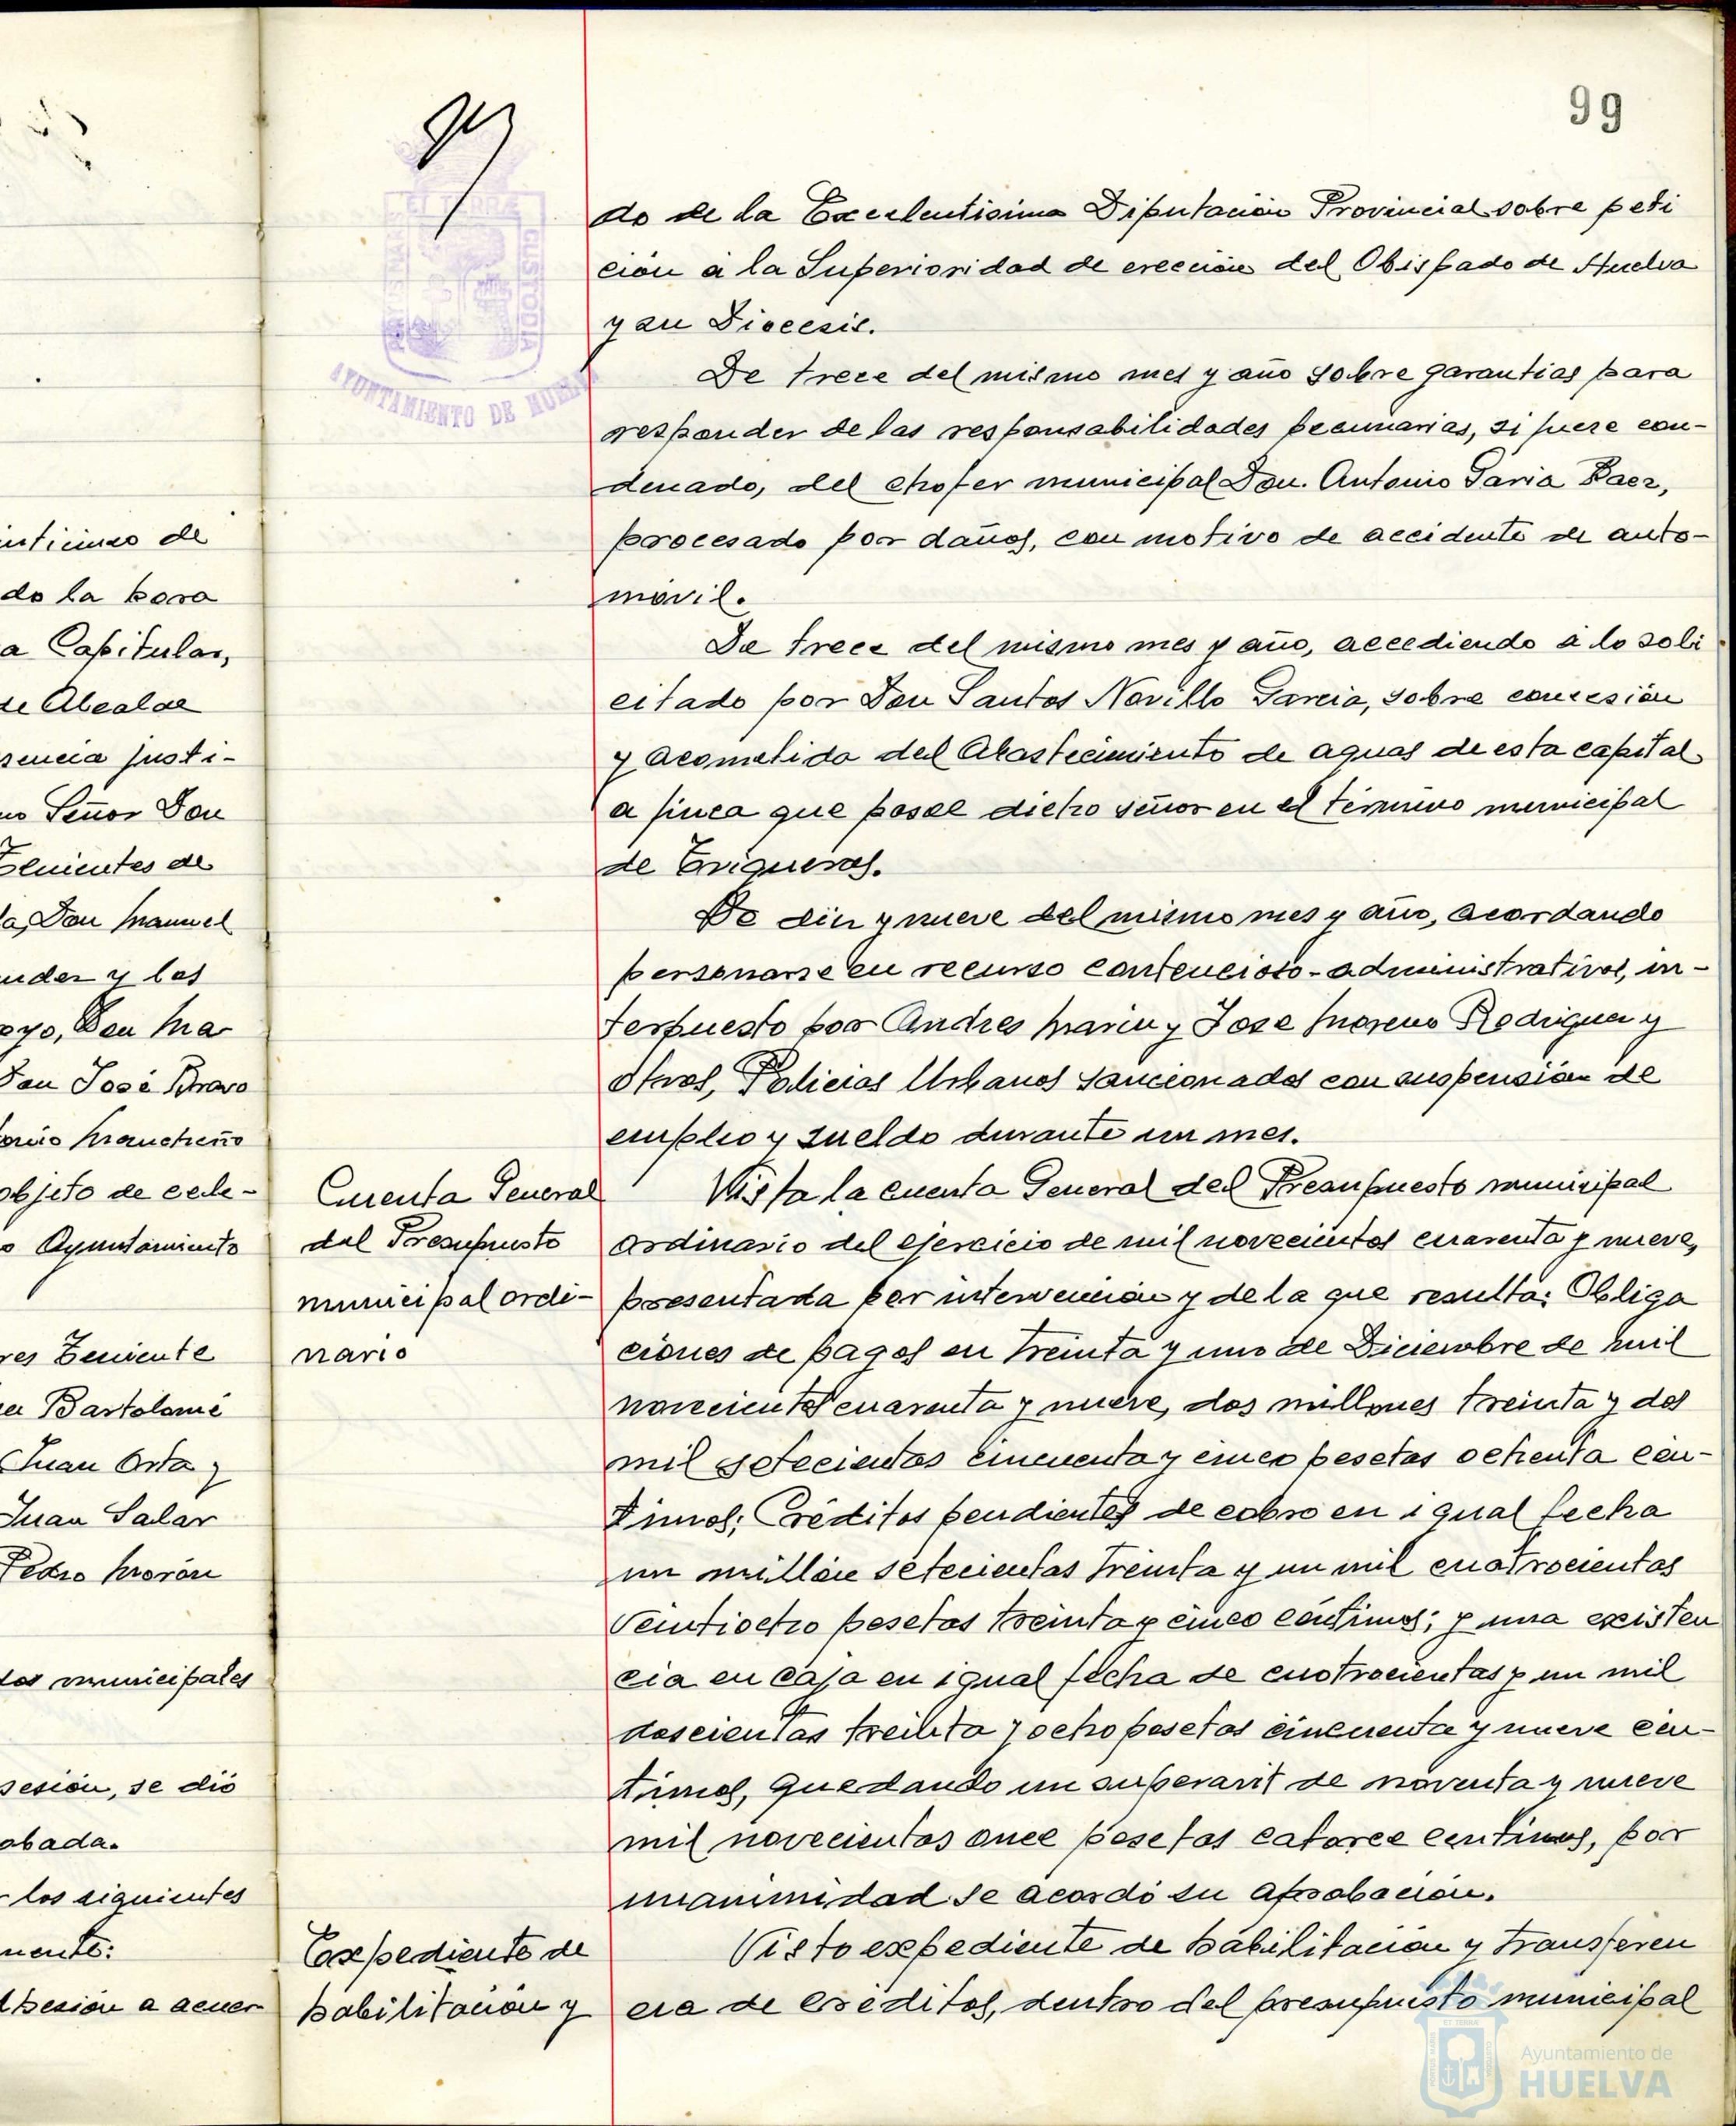 99
do de la Excelentisima Diputación Provincial sobre peti
ción a la Superioridad de erección del Obispado de Huelva
y su Diocesis.
De trece del mismo mes y año sobre garantias para
responder de las responsabilidades pecuniarias, si fuere con-
denado, del chofer municipal Don Antonio Garia Baez,
procesado por daños, con motivo de accidente de auto-
movil.
De trece del mismo mes y año, accediendo a lo soli
citado por Don Santos Novillo Garcia, sobre concesión
y acometida del Abastecimiento de aguas de esta capital
a finca que posee dicho señor en el término municipal
de Trigueros.
De diez y nueve del mismo mes y año, acordando
personarse en recurso contencioso-administrativos, in-
terpuesto por Andres Marin y Jose Moreno Rodriguez y
otros, Policias Urbanos sancionados con suspensión de
empleo y sueldo durante un mes.
Cuenta General
del Presupuesto
municipal ordi-
nario
Vista la cuenta General del Presupuesto municipal
ordinario del ejercicio de mil novecientos cuarenta y nueve,
presentada por intervención y de la que resulta: Obliga
ciones de pagos en treinta y uno de Diciembre de mil
novecientos cuarenta y nueve, dos millones treinta y dos
mil setecientas cincuenta y cinco pesetas ochenta cén-
timos; Créditos pendientes de cobro en igual fecha
un millón setecientas treinta y un mil cuatrocientas
veintiocho pesetas treinta y cinco céntimos; y una existen
cia en caja en igual fecha de cuatrocientas y un mil
doscientas treinta y ocho pesetas cincuenta y nueve cén-
timos, quedando un superavit de noventa y nueve
mil novecientas once pesetas catorce centimos, por
unanimidad se acordó su aprobación.
Expediente de
habilitación y
Visto expediente de habilitación y transferen
cia de créditos, dentro del presupuesto municipal
do la hora
a Capitular,
de Alcalde
sencia justi-
no Señor Don
Tenientes de
la, Don Manuel
nder y los
oyo, Don Ma
Don José Bravo
onio Mancheño
objeto de cele-
o Ayuntamiento
res Teniente
er Bartolomé
Juan Orta y
Juan Salar
Pedro Morón
tos municipales
sesión, se dió
obada.
los siguientes
mente:
sesión a acuer
AYUNTAMIENTO DE HUELVA
ET TERRÆ
CUSTODIA
Ayuntamiento de
HUELVA